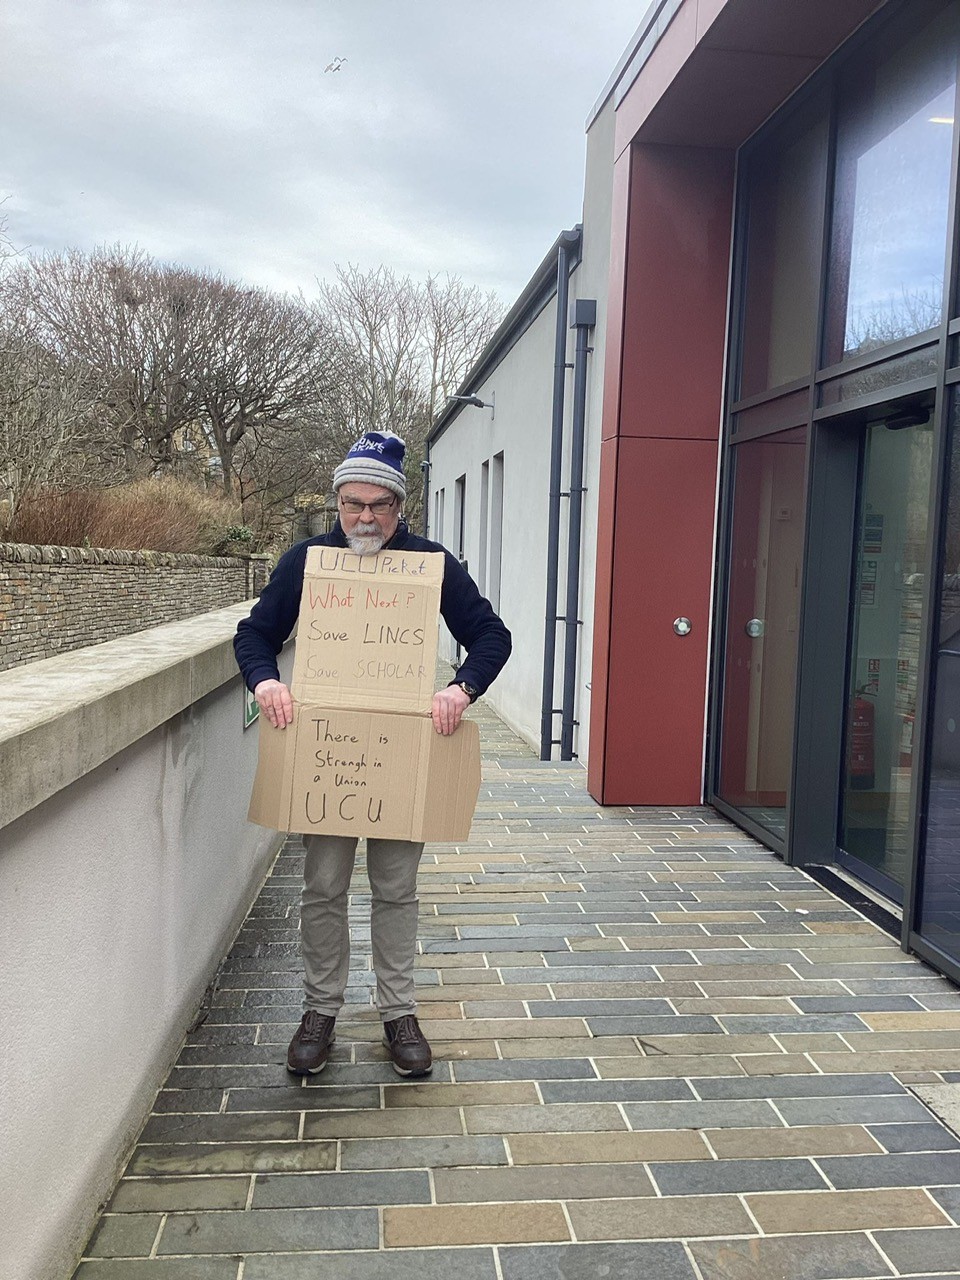 UCU Picket
What Next?
Save LINCS
Save SCHOLAR
There is
Strengh in
a Union
UCU